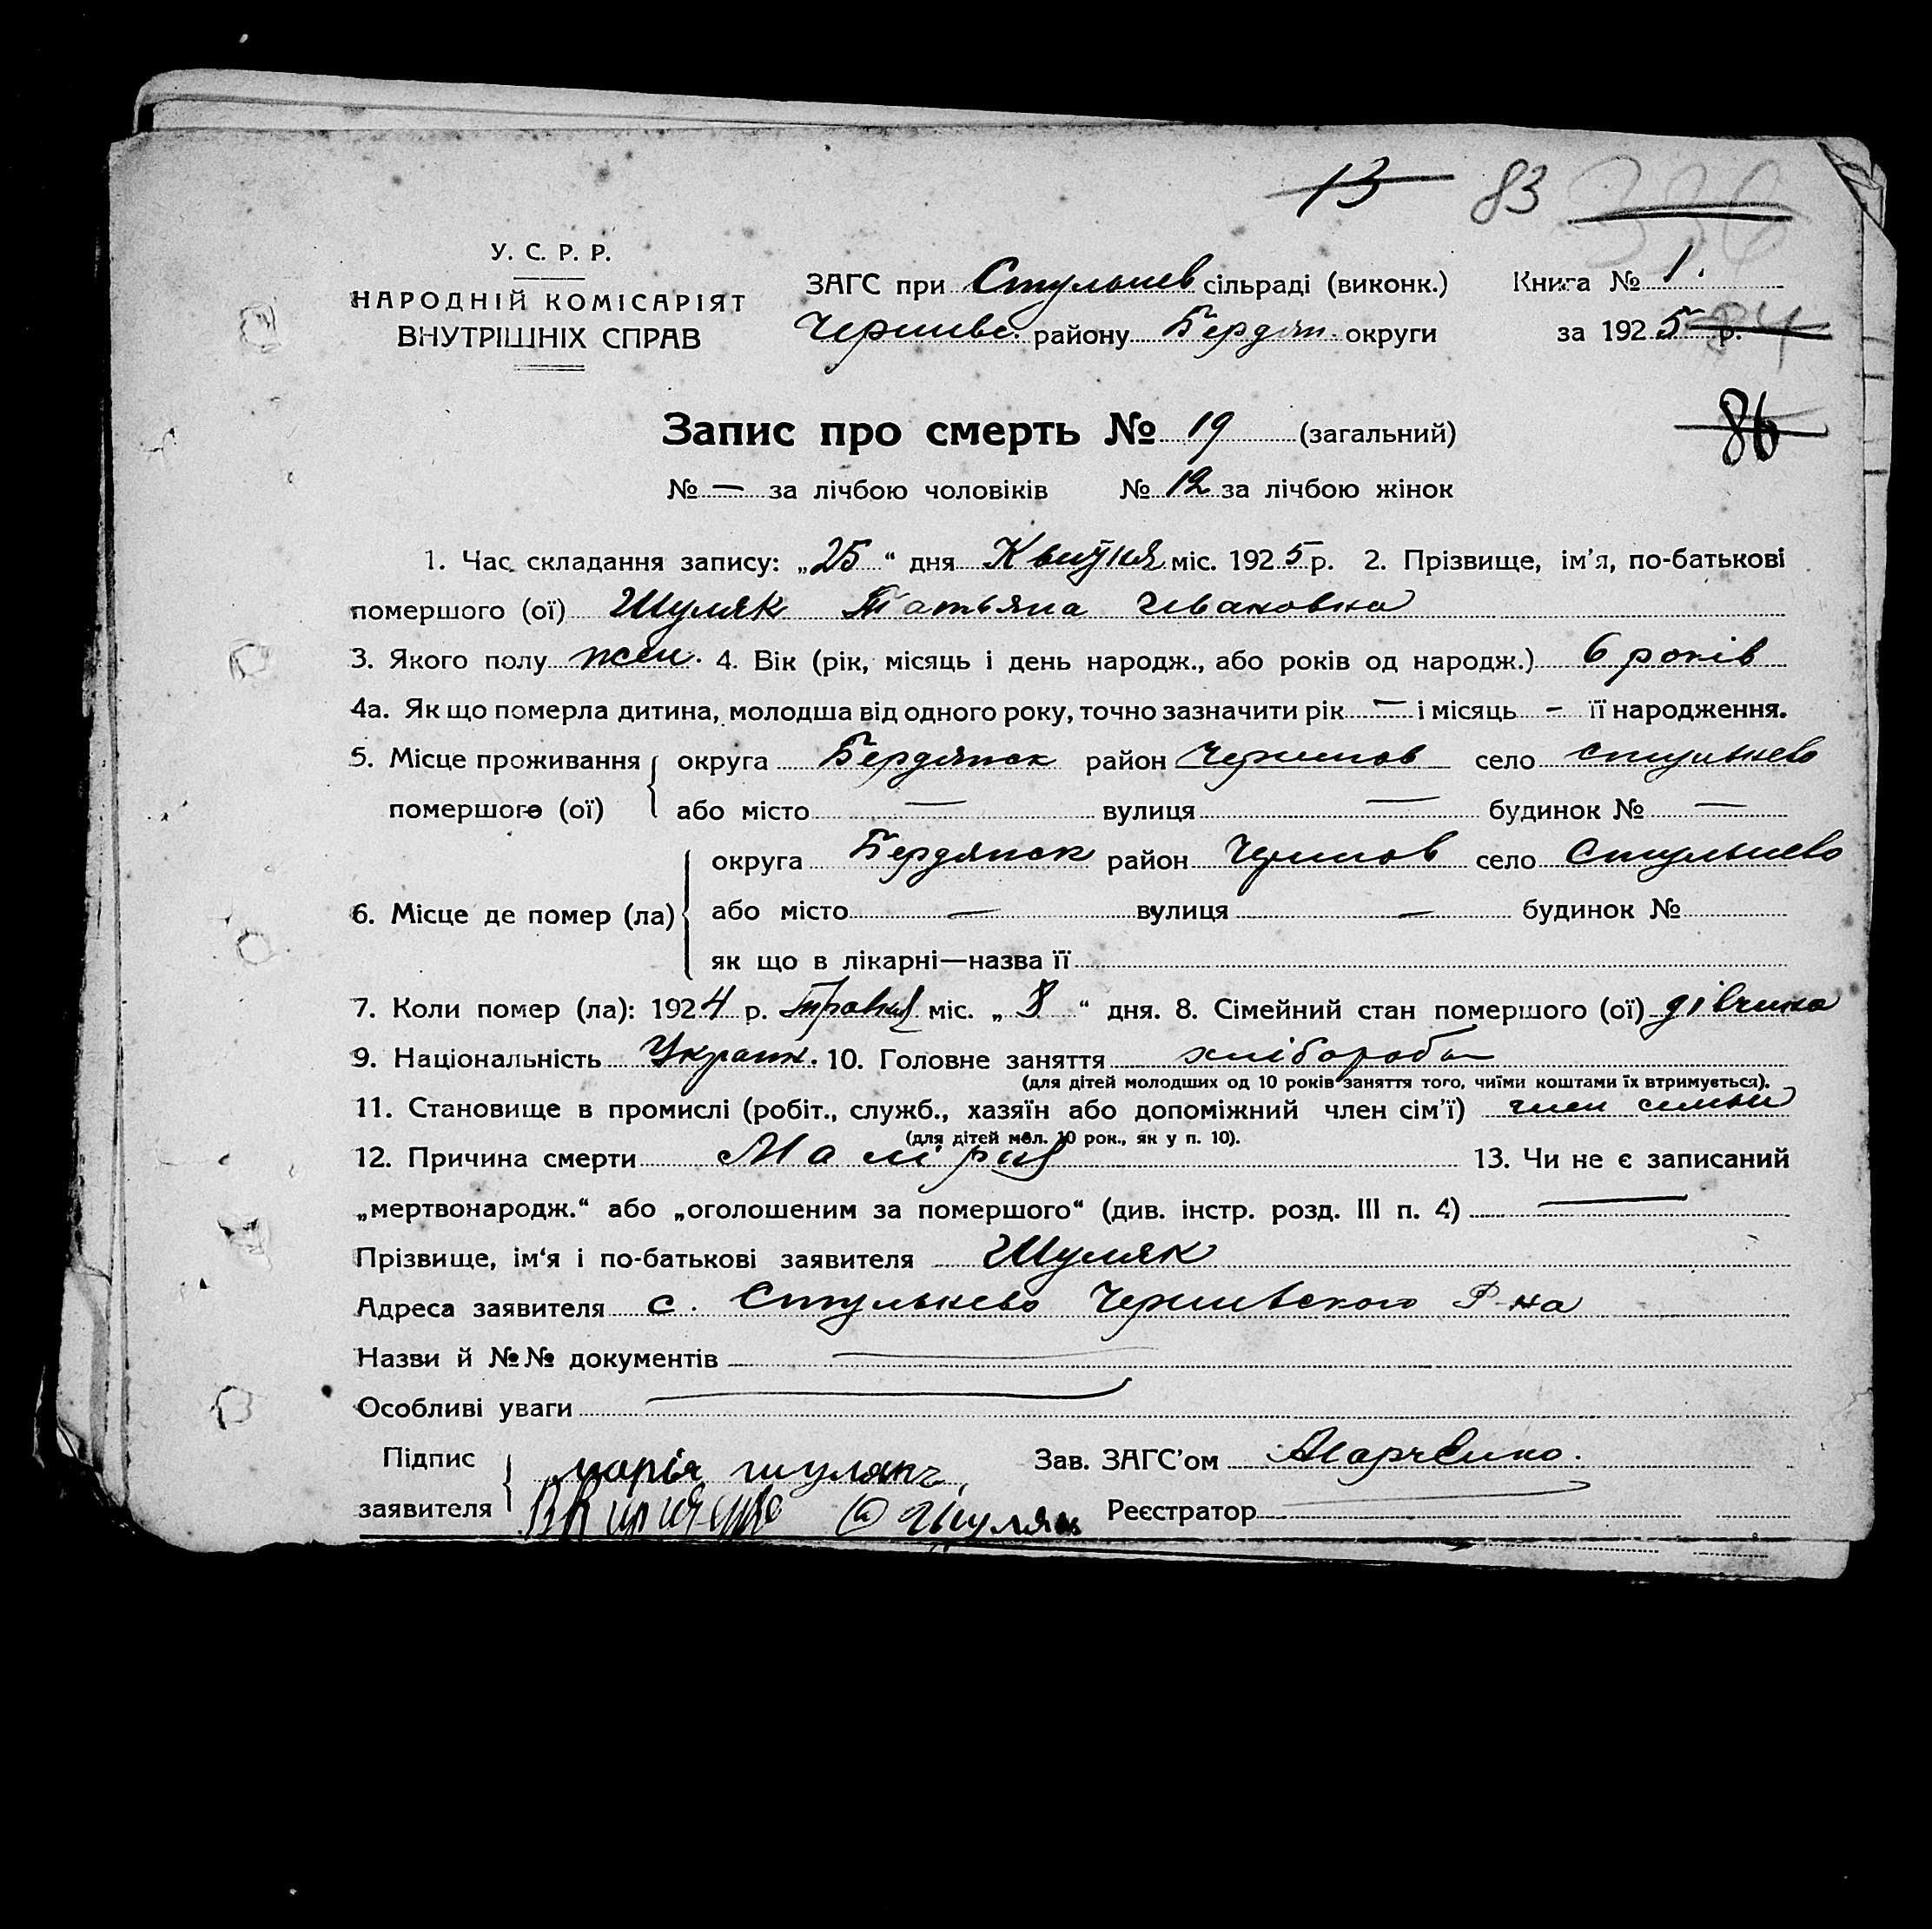 13 83 336
У. С. Р. Р.
НАРОДНІЙ КОМІСАРІЯТ
ВНУТРІШНІХ СПРАВ
ЗАГС при Стульнев сільраді (виконк.) Книга № 1.
Черниве. району Бердян. округи за 1925 р.
86
Запис про смерть № 19 (загальний)
№ — за лічбою чоловіків № 12 за лічбою жінок
1. Час складання запису: „25“ дня Квитня міс. 1925 р. 2. Прізвище, ім’я, по-батькові
помершого (ої) Шуляк Татьяна Ивановна
3. Якого полу жен. 4. Вік (рік, місяць і день народж., або років од народж.) 6 років
4а. Як що померла дитина, молодша від одного року, точно зазначити рік — і місяць - її народження.
5. Місце проживання округа Бердянск район Чернигов село Стульнево
помершого (ої) або місто — вулиця — будинок № —
округа Бердянск район Чернигов село Стульнево
6. Місце де помер (ла) або місто — вулиця — будинок №
як що в лікарні—назва її
7. Коли помер (ла): 1924 р. Травня міс. „8“ дня. 8. Сімейний стан помершого (ої) дівчина
9. Національність Украин. 10. Головне заняття хлібороба
(для дітей молодших од 10 років заняття того, чиїми коштами їх втримується).
11. Становище в промислі (робіт., служб., хазяїн або допоміжний член сім’ї) член семьи
(для дітей мол. 10 рок., як у п. 10).
12. Причина смерти Малірия 13. Чи не є записаний
„мертвонародж.“ або „оголошеним за помершого“ (див. інстр. розд. III п. 4) —
Прізвище, ім‘я і по-батькові заявителя Шуляк
Адреса заявителя с. Стульнево Чернивского Р-на
Назви й №№ документів —
Особливі уваги —
Підпис марія шулякъ Зав. ЗАГС’ом Марченко.
заявителя Шуляк Реєстратор